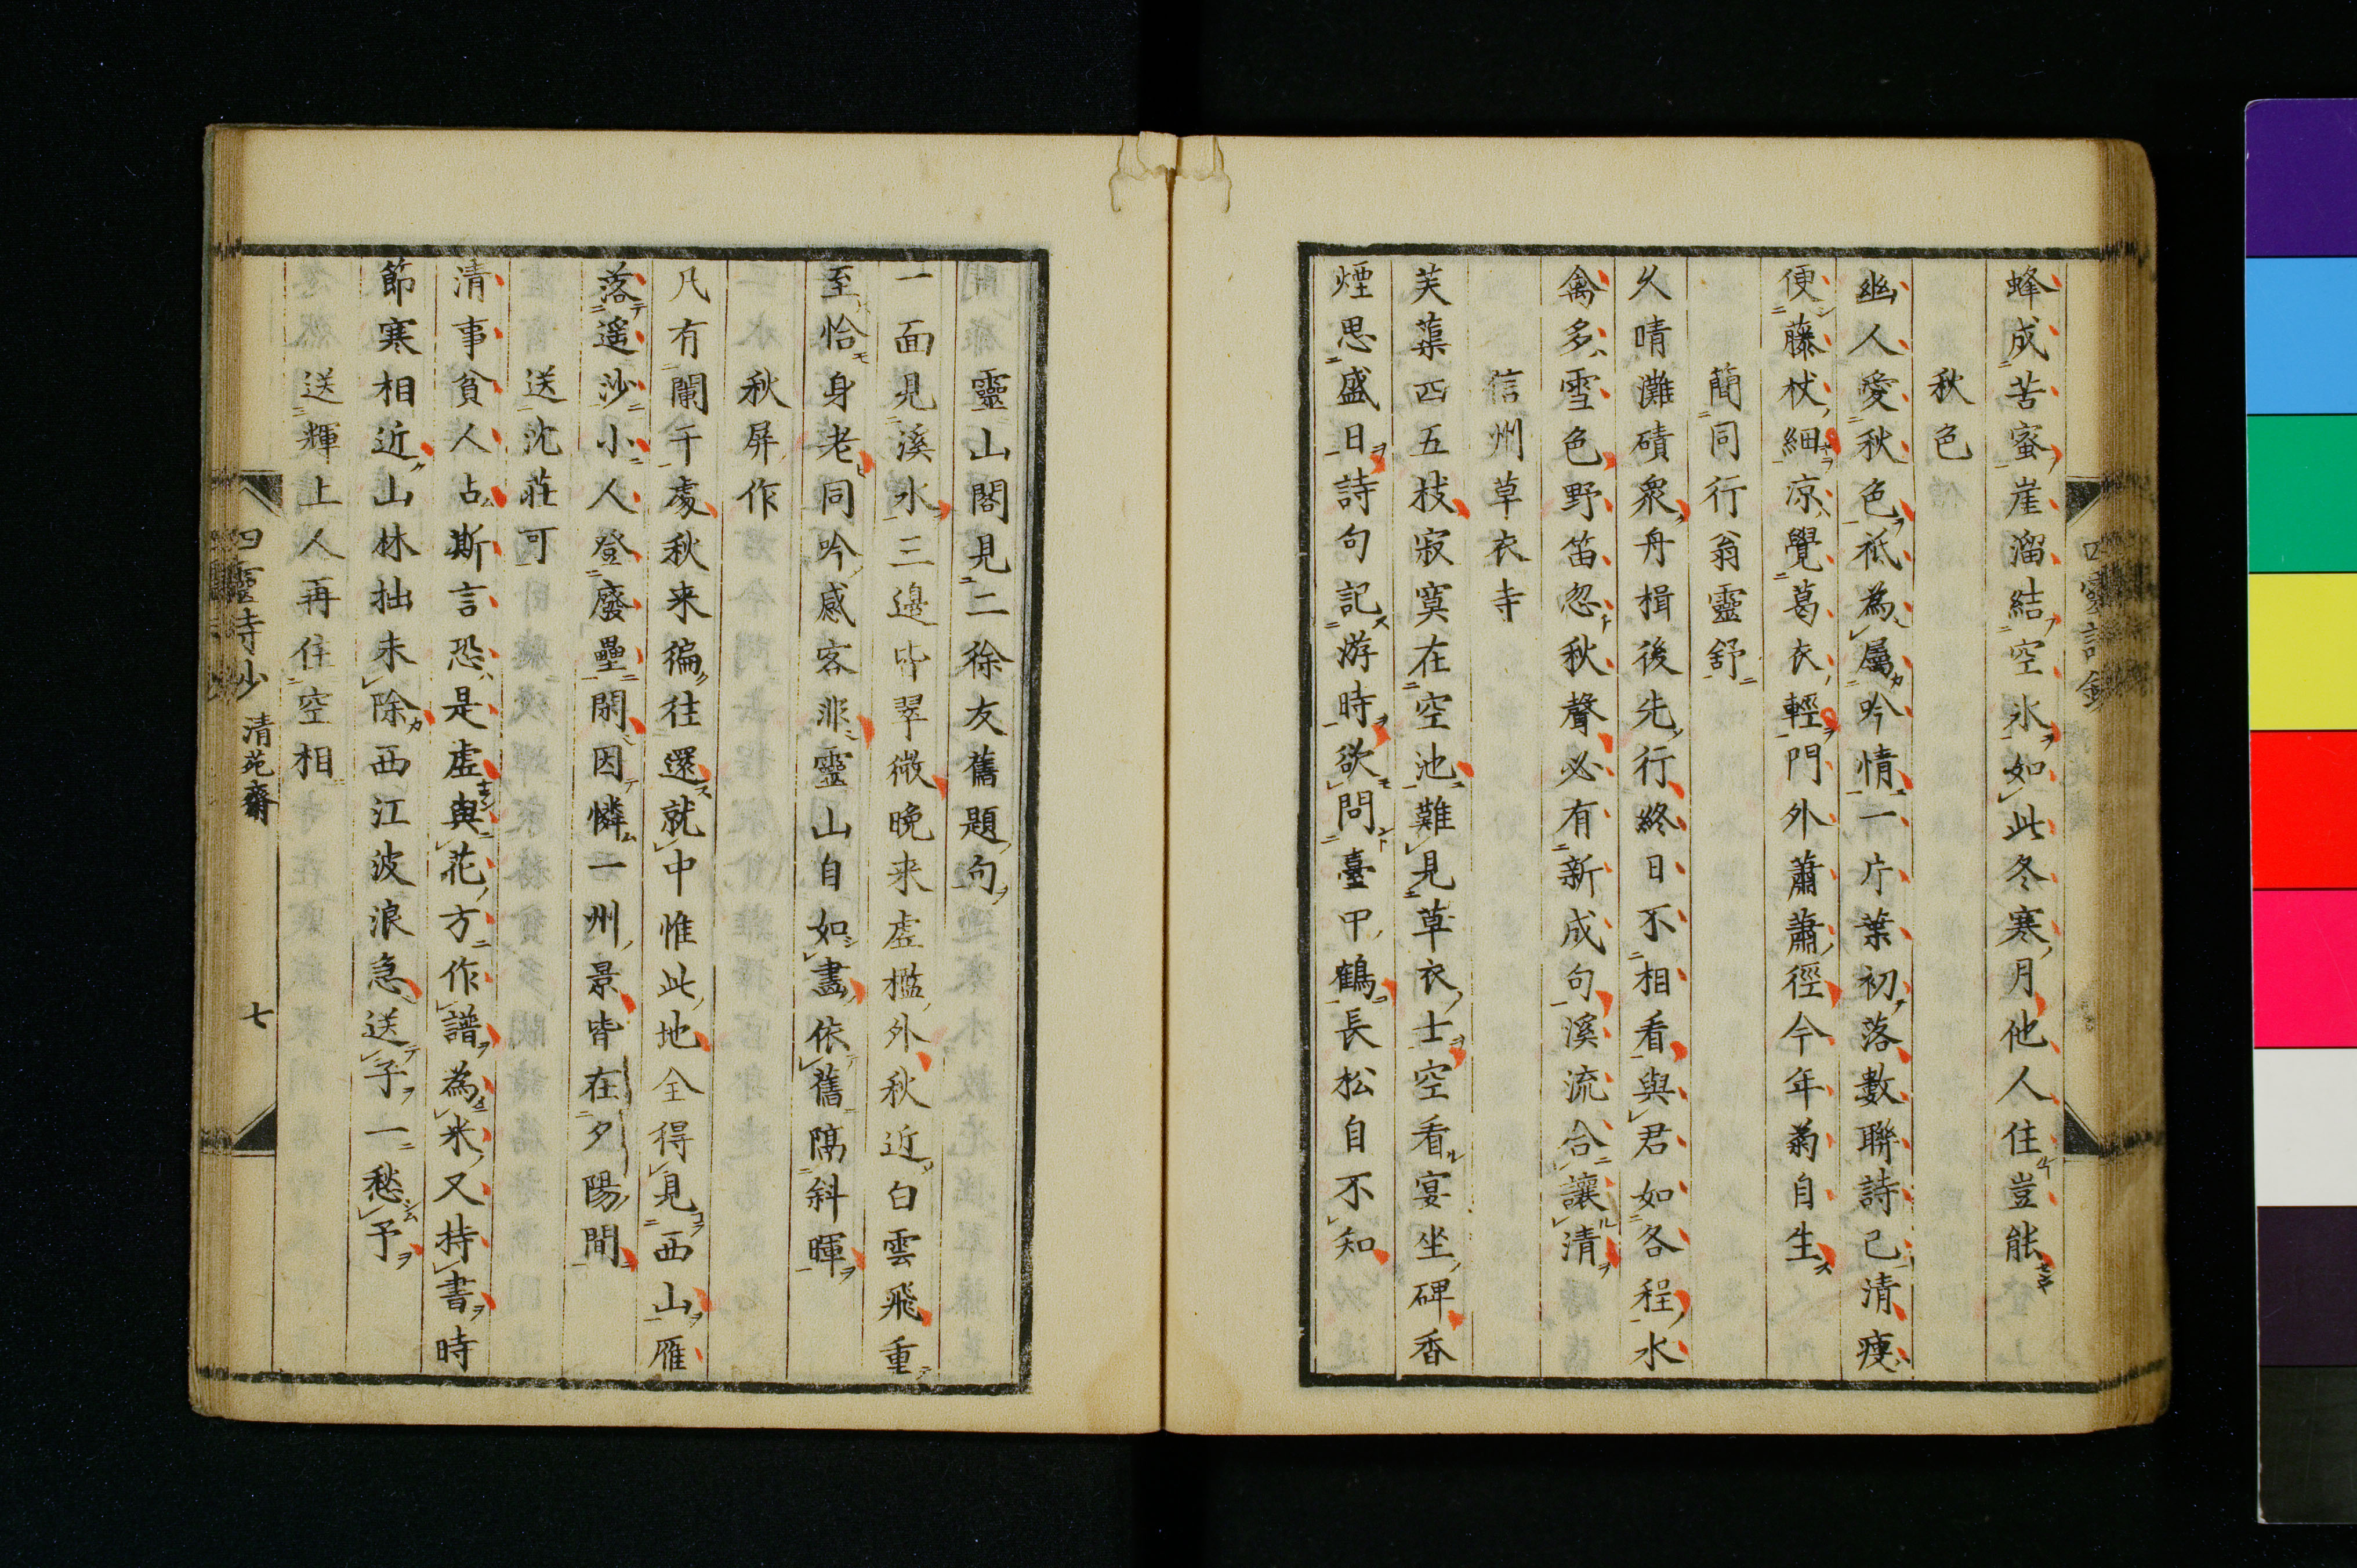 蜂成苦蜜崖溜結空氷如此冬寒月他人住豈能
秋色
幽人愛秋色祗為屬吟情一片葉初落數聯詩已清瘦
便藤杖細凉覺葛衣輕門外蕭蕭徑今年菊自生
簡同行翁靈舒
久晴灘磧衆舟楫後先行終日不相看與君如各程水
禽多雪色野笛忽秋聲必有新成句溪流合讓清
信州草衣寺
芙蕖四五枝寂寞在空池難見草衣士空看宴坐碑香
煙思盛日詩句記游時欲問臺甲鶴長松自不知
靈山閣見二徐友舊題句
一面見溪水三邉皆翠微晩来虚檻外秋近白雲飛重
至恰身老同吟感客非靈山自如畫依舊隔斜暉
秋屏作
凡有闌干處秋来徧往還就中惟此地全得見西山雁
落遥沙小人登廢壘閑因憐一州景皆在夕陽間
送沈莊可
清事貧人占斯言恐是虚與花方作譜為米又持書時
節寒相近山林拙未除西江波浪急送子一愁予
送輝上人再住空相
清苑齋
七